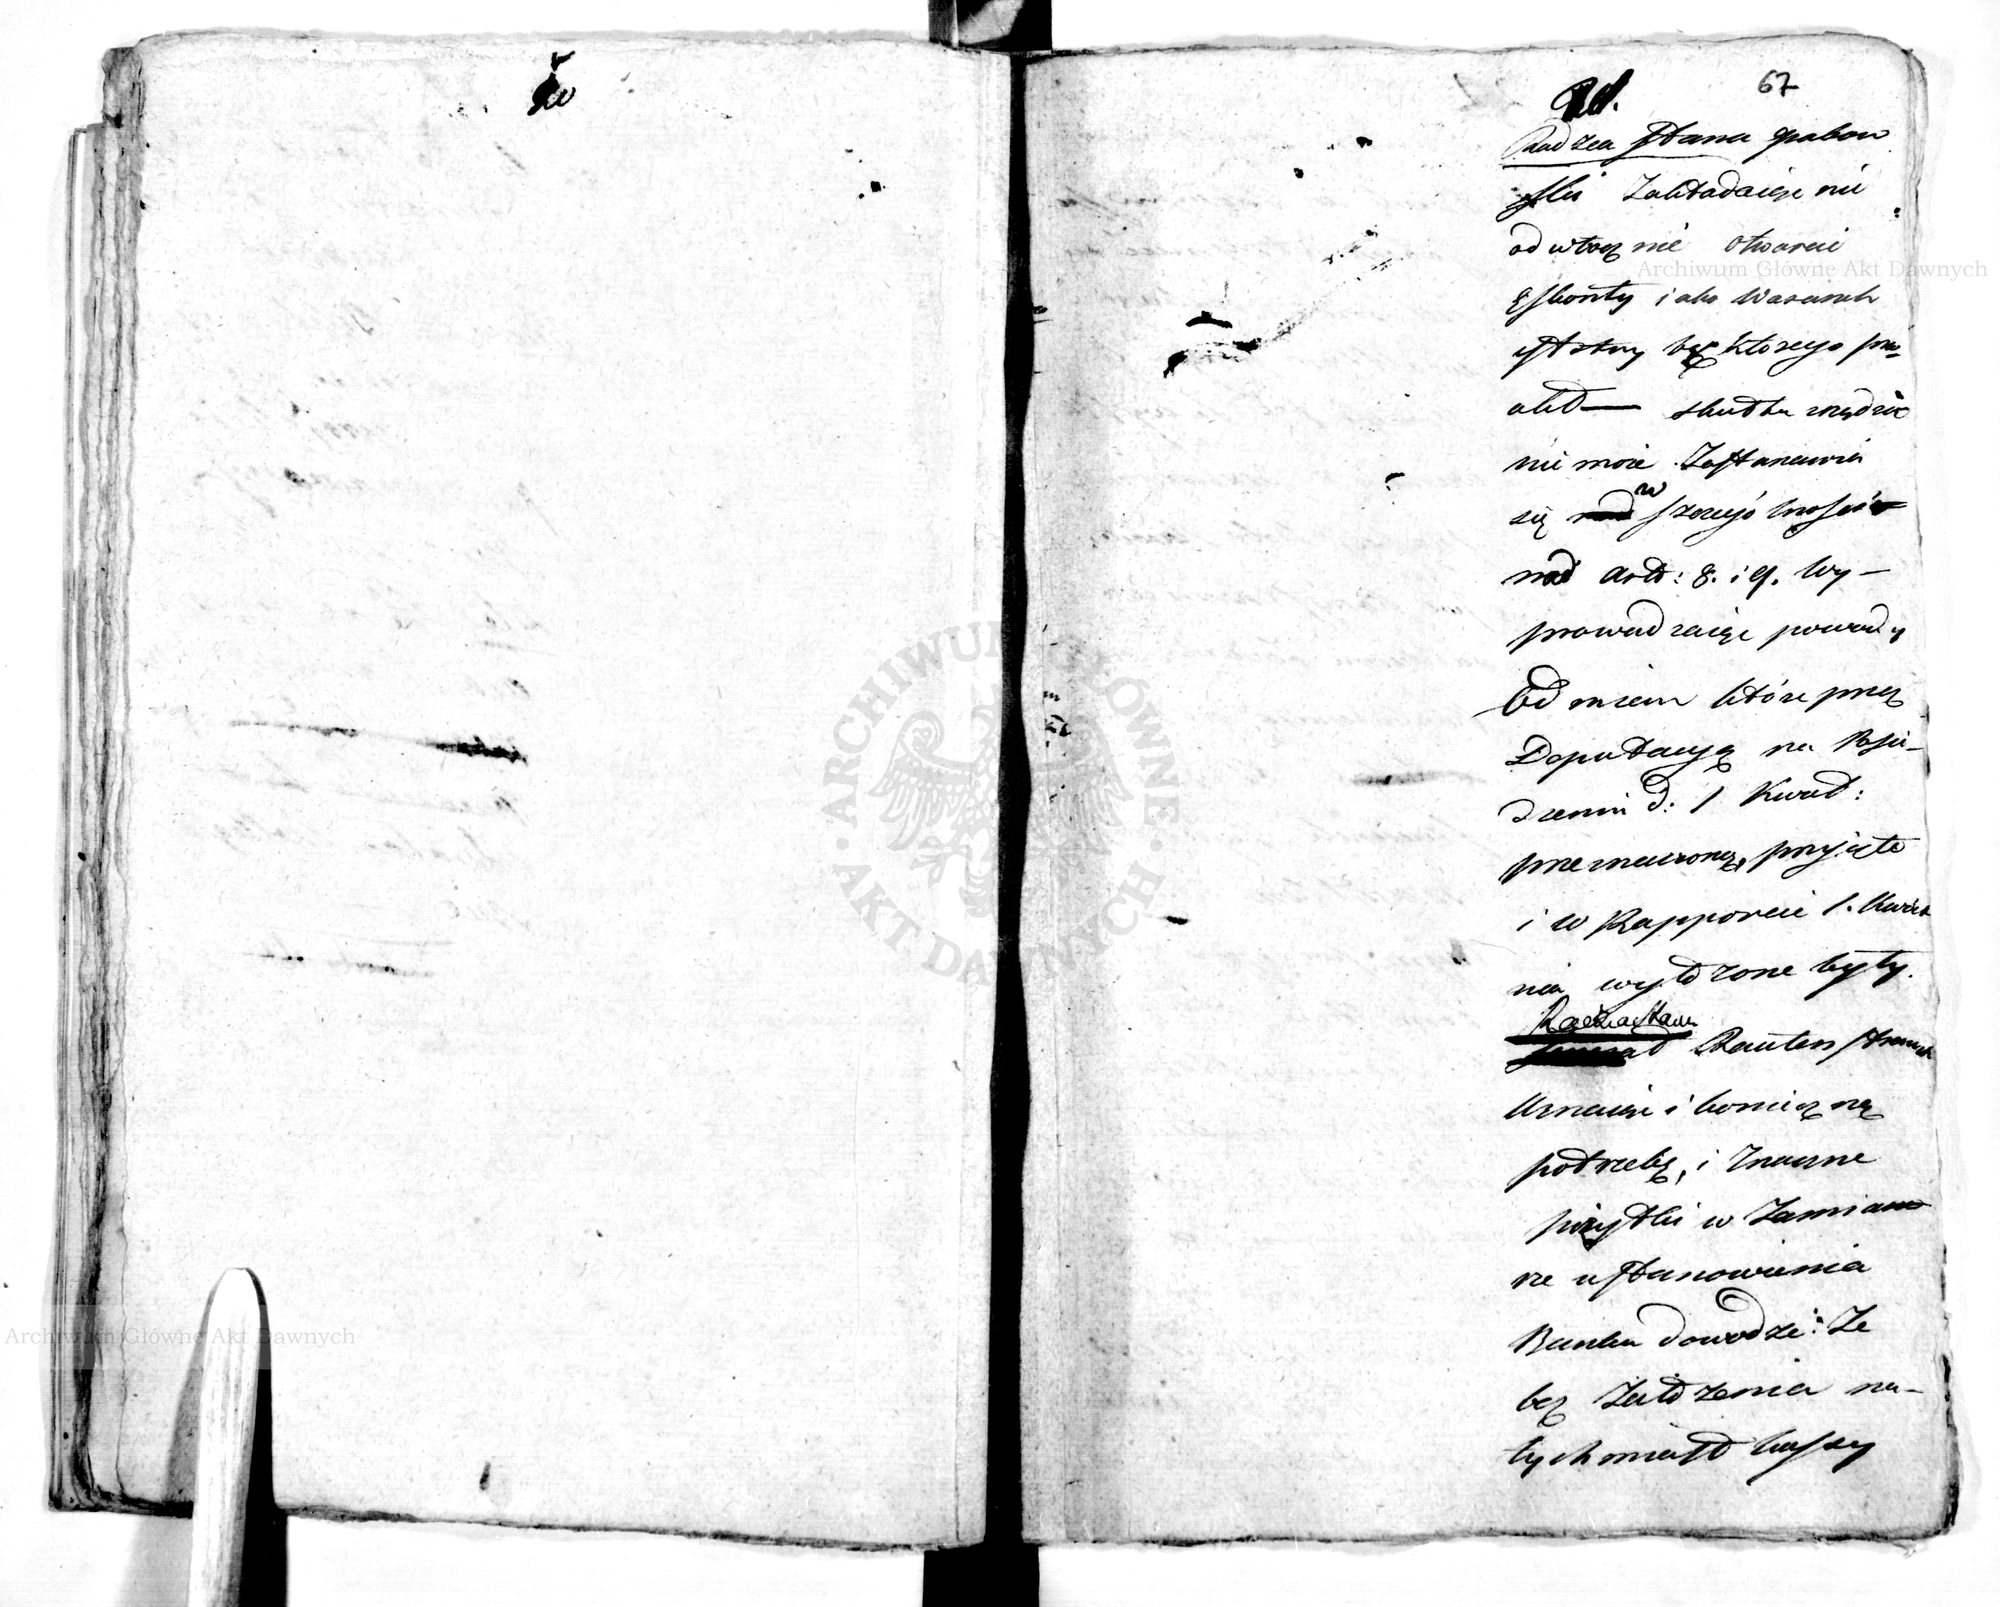 67
Radzca Stanu Grabow
ski Zakładaiąc nie
odwłocznie otwarcie
Eskonty iako Warunek
istotny bez którego pro
iekt skutku wziąść
nie może Zastanawia
się w szczegó lności
nad Artt: 8. i 9. Wy-
prowadzaiąc powody
Odmian które przez
Deputacyą na Posie-
dzeniu d: 1 Kwiet:
przeznaczoną, przyięte
i w Rapporcie 1. Kwiet
nia wytkzone były.
Radzca Stanu
Rautenstrauch
Uznaiąc i konieczną
potrzebę, i Znaczne
pożytki w Zamiarze
ustanowienia
Banku dowodzi: Że
bez Założenia na-
tychmiast kassy
Archiwum Główne Akt Dawnych
Archiwum Główne Akt Dawnych
ARCHIWUM GŁÓWNE
AKT DAWNYCH